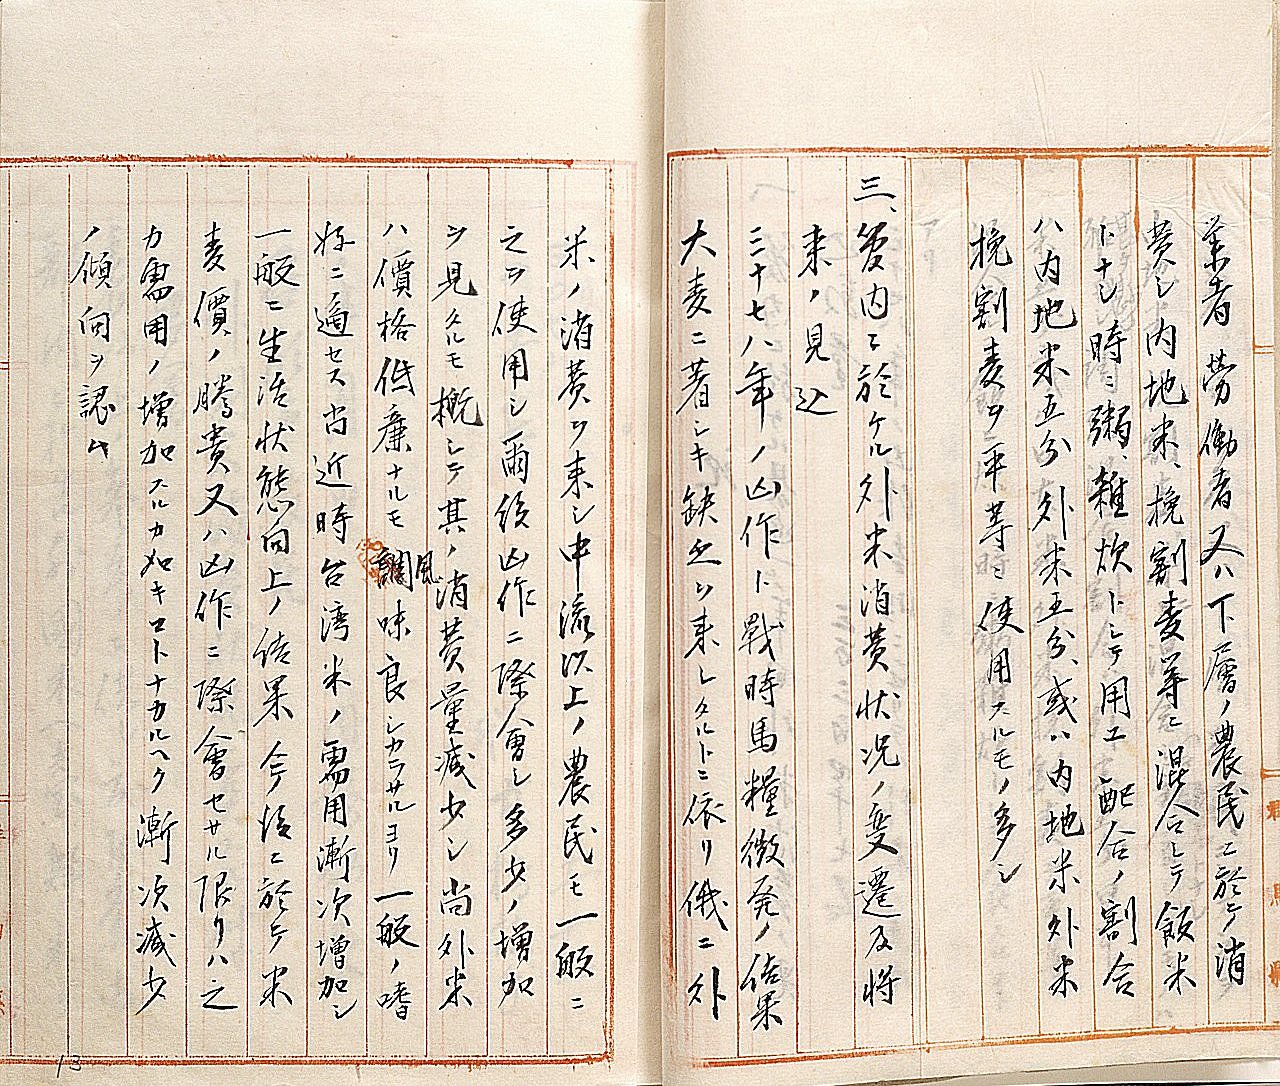 業者労働者又ハ下層ノ農民ニ於テ消
費シ内地米、挽割麦等ニ混合シテ飯米
トナシ時ニ粥、雑炊トシテ用ユ配合ノ割合
ハ内地米五分外米五分、或ハ内地米外米
挽割麦ヲ平等ニ使用スルモノ多シ
三、管内ニ於ケル外米消費状況ノ変遷及将
来ノ見込
三十七八年ノ凶作ト戦時馬糧徴発ノ結果
大麦ニ著シキ缺乏ヲ来シタルトニ依リ俄ニ外
米ノ消費ヲ来シ中流以上ノ農民モ一般ニ
之ヲ使用シ爾後凶作ニ際會シ多少ノ増加
ヲ見タルモ概シテ其ノ消費量減少シ尚外米
ハ價格低廉ナルモ風味良シカラサルヨリ一般ノ嗜
好ニ適セス尚近時台湾米ノ需用漸次増加シ
一般ニ生活状態向上ノ結果今後ニ於テ米
麦價ノ騰貴又ハ凶作ニ際會セサル限リハ之
カ需用ノ増加スルカ如キコトナカルヘク漸次減少
ノ傾向ヲ認ム
13